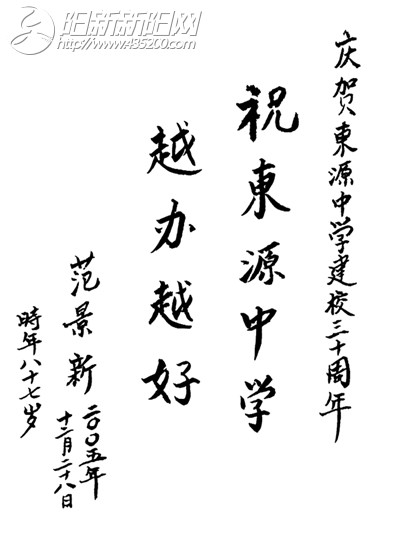 阳新新阳网
http://www.435200.com
庆贺東源中学建校三十周年
祝東源中学
越办越好
范景新
二00五年
十二月二十八日
時年八十七岁